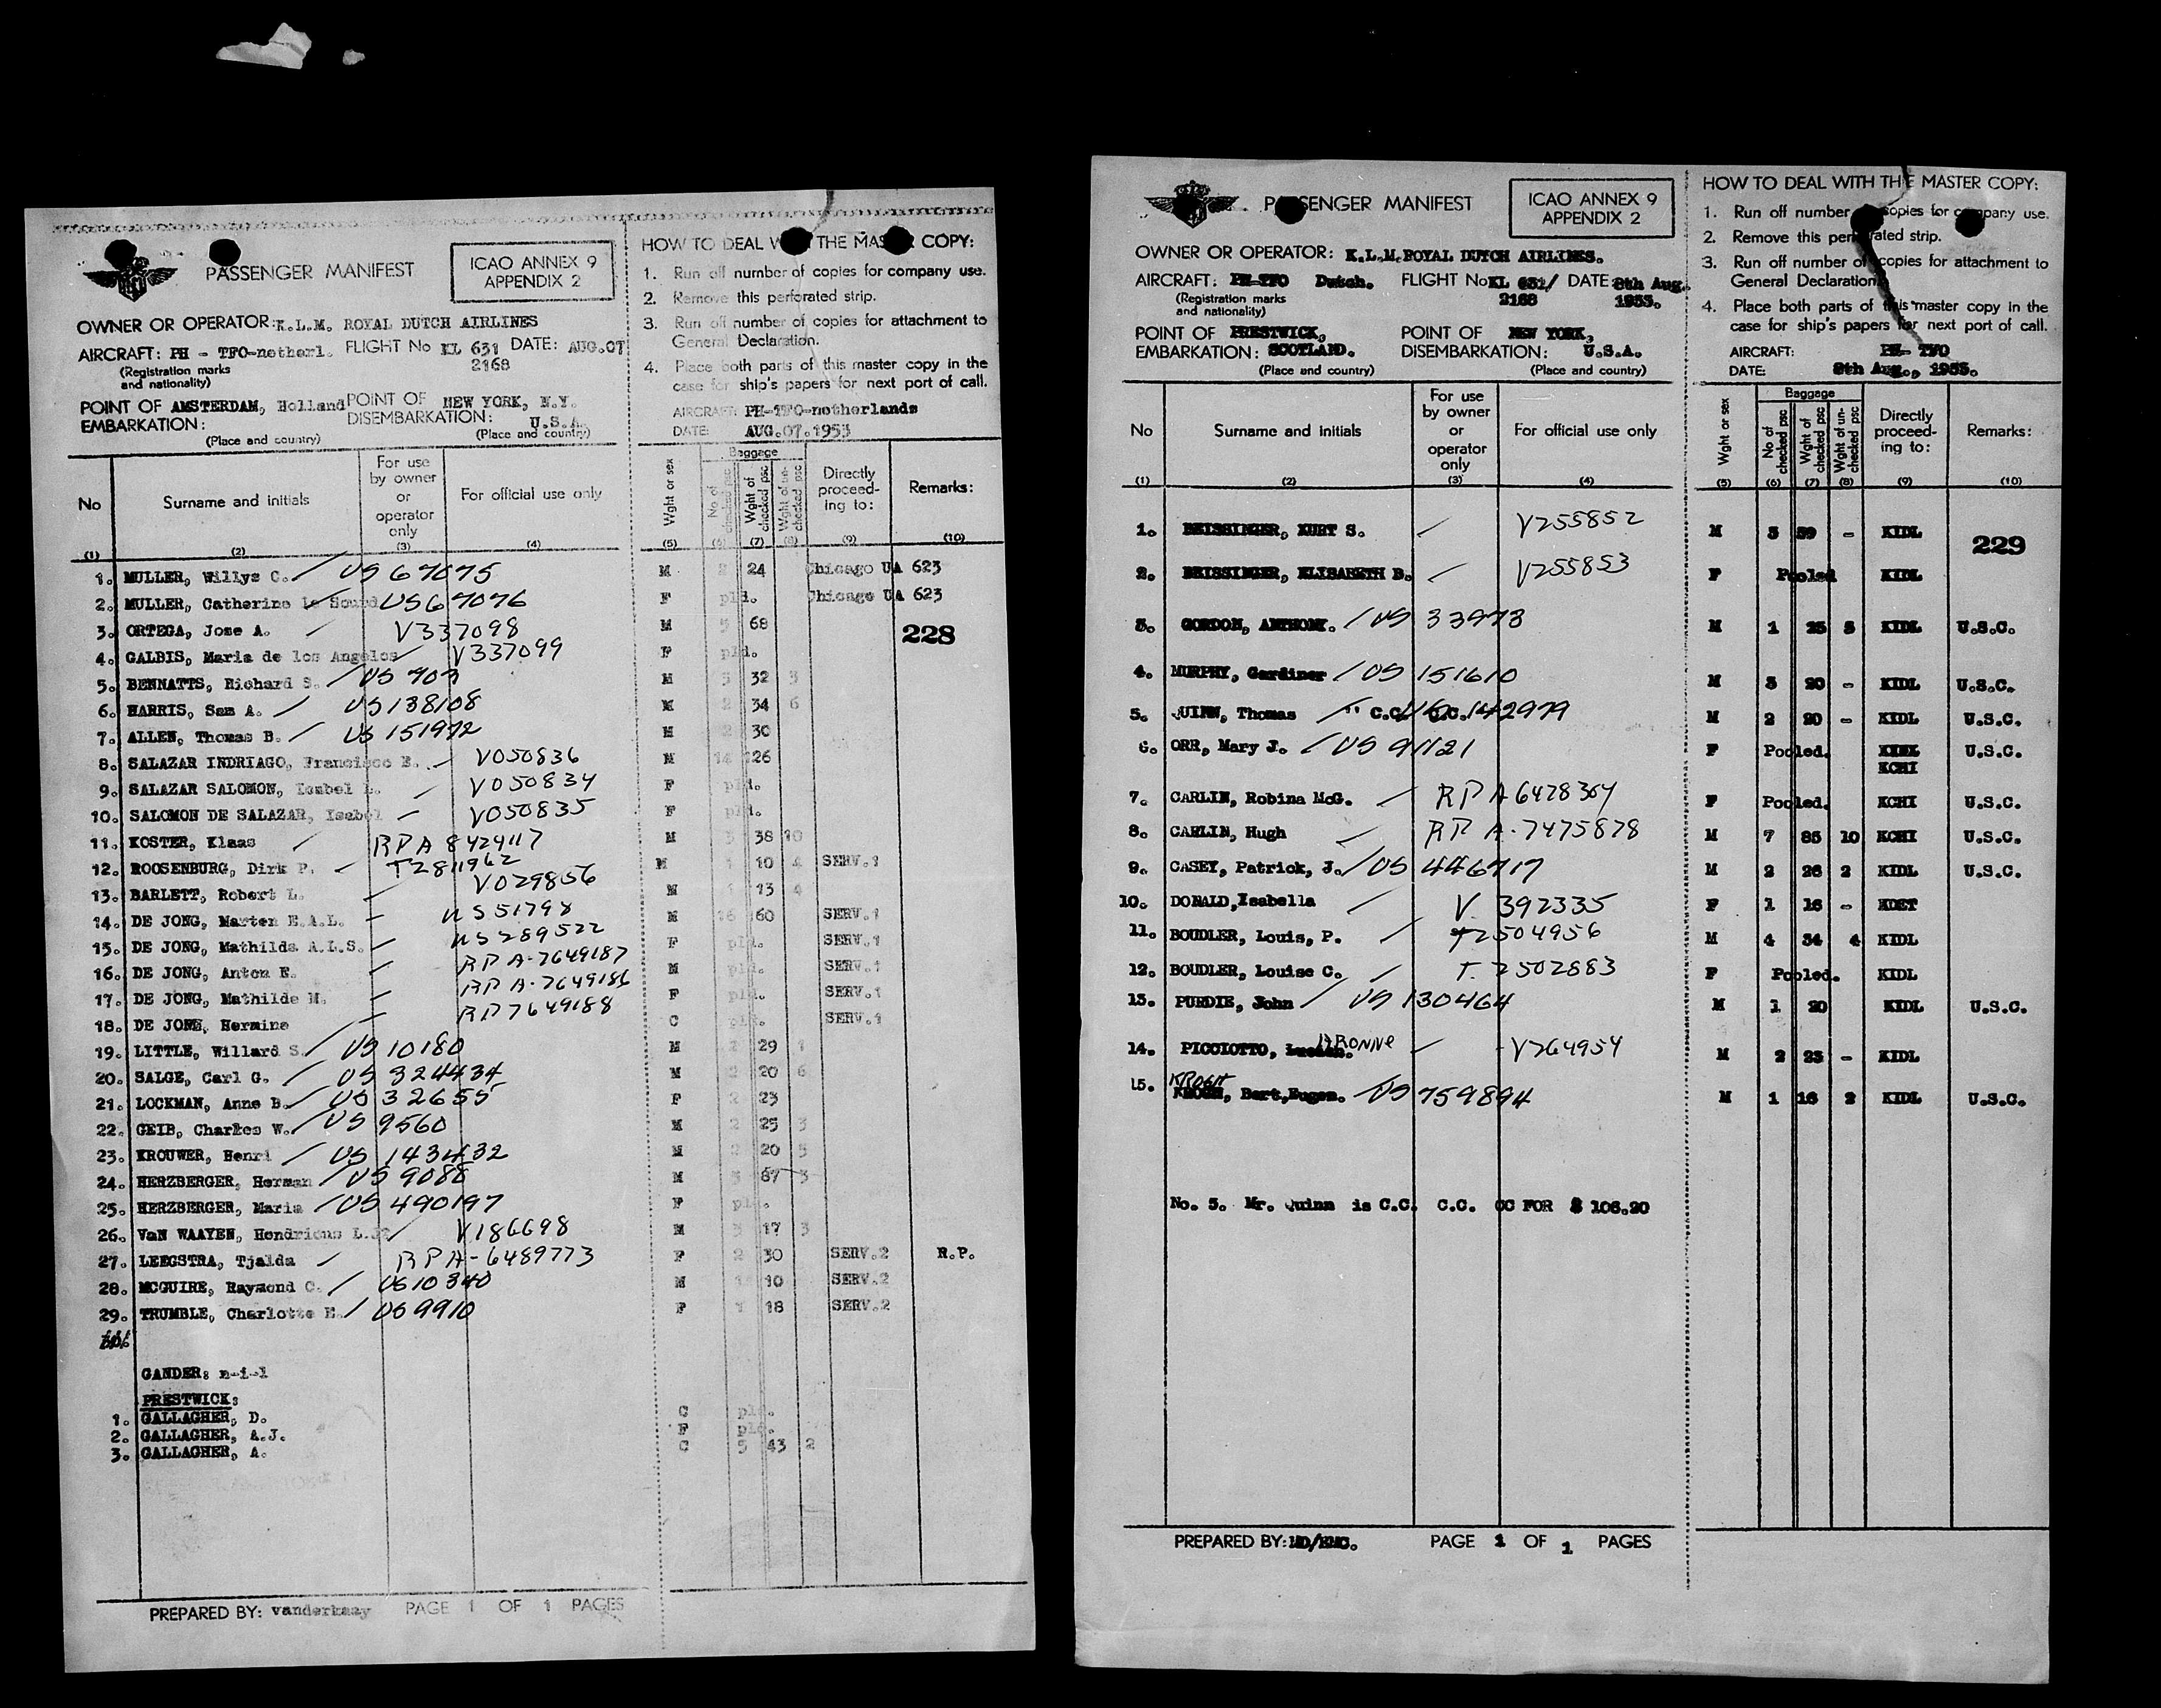 PASSENGER MANIFEST
ICAO ANNEX 9
APPENDIX 2
OWNER OR OPERATOR: K.L.M. ROYAL DUTCH AIRLINES
AIRCRAFT: PH - TFO-netherl. FLIGHT No KL 631 DATE: AUG.07
(Registration marks 2168
and nationality)
POINT OF AMSTERDAM, Holland POINT OF NEW YORK, N.Y.
EMBARKATION: DISEMBARKATION: U.S.A.
(Place and country) (Place and country)
HOW TO DEAL THE MAS COPY:
1. Run off number of copies for company use.
2. Remove this perforated strip.
3. Run off number of copies for attachment to
General Declaration.
4. Place both parts of this master copy in the
case for ship's papers for next port of call.
AIRCRAFT: PH-TFO-netherlands
DATE: AUG.07.1953
No Surname and initials For use by owner or operator only For official use only Wght or sex Baggage No of checked psc Wght of checked psc Wght of un-checked psc Directly proceed-ing to: Remarks:
(1) (2) (3) (4) (5) (6) (7) (8) (9) (10)
1. MULLER, Willys C. / US 67075 M 2 24 Chicago UA 623
2. MULLER, Catherine Le Sourd US 67076 F pld. Chicago UA 623
3. ORTEGA, Jose A. / V337098 M 5 68
228
4. GALBIS, Maria de los Angelos V337099 F pld.
5. BENNATTS, Richard S. / US 907 M 3 32 3
6. HARRIS, Sam A. / US 138108 M 2 34 6
7. ALLEN, Thomas B. / US 151972 M 2 30
8. SALAZAR INDRIAGO, Francisco E. V050836 M 14 126
9. SALAZAR SALOMON, Isabel V050834 F pld.
10. SALOMON DE SALAZAR, Isabel V050835 F pld.
11. KOSTER, Klaas RPA 8424117 M 3 38 10
12. ROOSENBURG, Dirk P. T2811962 M 1 10 4 SERV.1
13. BARLETT, Robert L. V029856 M 1 13 4
14. DE JONG, Marten E.A.L. US 51798 M 16 160 SERV.1
15. DE JONG, Mathilda A.L.S. US 289522 F pld. SERV.1
16. DE JONG, Anton E. RPA-7649187 M pld. SERV.1
17. DE JONG, Mathilde M. RPA-7649186 F pld. SERV.1
18. DE JONG, Hermine RP7649188 C pld. SERV.1
19. LITTLE, Willard S. / US 10180 M 2 29 1
20. SALGE, Carl G. / US 324434 M 2 20 6
21. LOCKMAN, Anne B. / US 32655 F 2 23
22. GEIB, Charles W. / US 9560 M 2 25 3
23. KROUWER, Henri / US 143432 M 2 20 5
24. HERZBERGER, Herman / US 9088 M 5 87 3
25. HERZBERGER, Maria / US 490197 F pld.
26. VaN WAAYEN, Hendricus L.J. V186698 M 3 17 3
27. LEEGSTRA, Tjalda / RPA-6489773 F 2 30 SERV.2 R.P.
28. MCGUIRE, Raymond C. / US 10340 M 1 10 SERV.2
29. TRUMBLE, Charlotte E. / US 9910 F 1 18 SERV.2
GANDER: n-i-l
PRESTWICK:
1. GALLAGHER, D. C pld.
2. GALLAGHER, A.J. F pld.
3. GALLAGHER, A. C 5 43 2
PREPARED BY: vanderkaay PAGE 1 OF 1 PAGES
PASSENGER MANIFEST
ICAO ANNEX 9
APPENDIX 2
OWNER OR OPERATOR: K.L.M. ROYAL DUTCH AIRLINES.
AIRCRAFT: PH-TFO Dutch. FLIGHT No KL 631/ DATE 8th Aug.
(Registration marks 2168 1953.
and nationality)
POINT OF PRESTWICK, POINT OF NEW YORK,
EMBARKATION: SCOTLAND. DISEMBARKATION: U.S.A.
(Place and country) (Place and country)
HOW TO DEAL WITH THE MASTER COPY:
1. Run off number copies for company use.
2. Remove this perforated strip.
3. Run off number of copies for attachment to
General Declaration
4. Place both parts of this master copy in the
case for ship's papers for next port of call.
AIRCRAFT: PH- TFO
DATE: 8th Aug., 1953.
No Surname and initials For use by owner or operator only For official use only Wght or sex Baggage No of checked psc Wght of checked psc Wght of un-checked psc Directly proceed-ing to: Remarks:
(1) (2) (3) (4) (5) (6) (7) (8) (9) (10)
1. BEISSINGER, KURT S. / V255852 M 3 39 - KIDL
229
2. BEISSINGER, ELISABETH B. / V255853 F Pooled KIDL
3. GORDON, ANTHONY. / US 33973 M 1 25 5 KIDL U.S.C.
4. MURPHY, Gardiner / US 151610 M 3 20 - KIDL U.S.C.
5. QUINN, Thomas / " C.C. 142979 M 2 20 - KIDL U.S.C.
6. ORR, Mary J. / US 91121 F Pooled. KIDL U.S.C.
KCHI
7. CARLIN, Robina McG. / RPA6478364 F Pooled. KCHI U.S.C.
8. CARLIN, Hugh / RP A-7475878 M 7 85 10 KCHI U.S.C.
9. CASEY, Patrick, J. / US 446717 M 2 26 2 KIDL U.S.C.
10. DONALD, Isabella / V. 392335 F 1 16 - KDET
11. BOUDLER, Louis, P. / T2504956 M 4 34 4 KIDL
12. BOUDLER, Louise C. / T. 2502883 F Pooled. KIDL
13. PURDIE, John / US 130464 M 1 20 KIDL U.S.C.
14. PICCIOTTO, / - V264954 M 2 23 - KIDL
15. KROGH, Bert, Eugen. / US 759894 M 1 16 2 KIDL U.S.C.
No. 5. Mr. Quinn is C.C. C.C. CC FOR $ 106.20
PREPARED BY: MD/EMC. PAGE 1 OF 1 PAGES